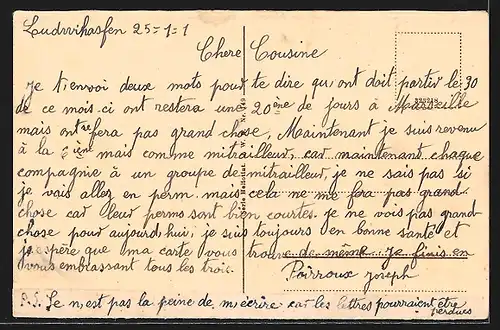 Ludwihasfen 25=1=1
Chere Cousine
Je t'envoi deux mots pour te dire qu'ont doit partir le 30
de ce mois-ci ont restera une 20ène de jours à Marseille
mais ont refera pas grand chose, Maintenant je suis revenu
à la 6ième mais comme mitrailleur, car maintenant chaque
compagnie à un groupe de mitrailleur, je ne sais pas si
je vais aller en perm. mais cela ne me fera pas grand
chose car leur perms sont bien courtes. je ne vois pas grand
chose pour aujourd'hui, je suis toujours en bonne santé et
j'espère que ma carte vous trouve de même. je finis en
vous emblassant tous les trois.
Poirroux joseph
P.S. Se n'est pas la peine de m'écrire car les lettres pourraient être
perdues